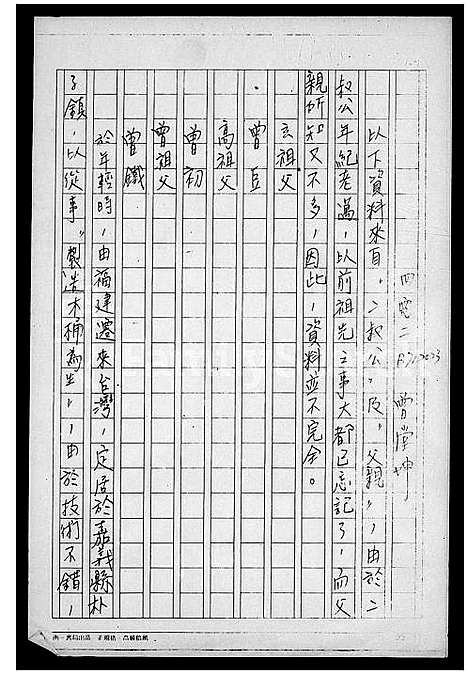 四 二 曾掌坤
以下資料來自〝二叔公〞及〝父親〞，由於二
叔公年紀老邁，以前祖先之事大都已忘記了，而父
親所知又不多，因此，資料並不完全。
玄祖父
曾豆
高祖父
曾初
曾祖父
曾鐵
於年輕時，由福建遷來台灣，定居於嘉義縣朴
子鎮，以從事〝製造木桶為生〞，由於技術不錯，